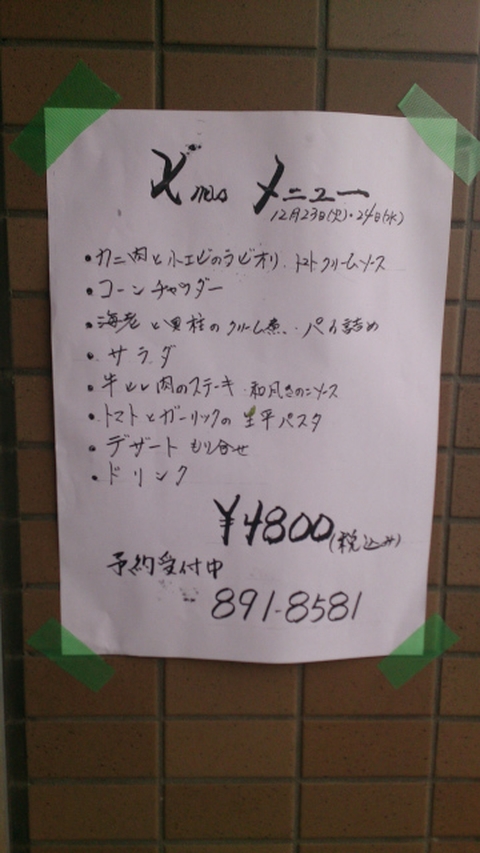 Xmas メニュー
12月23日(火)・24日(水)
・カニ肉と小エビのラビオリ トマトクリームソース
・コーンチャウダー
・海老と貝柱のクリーム煮 パイ詰め
・サラダ
・牛ヒレ肉のステーキ 和風きのこソース
・トマトとガーリックの生平パスタ
・デザートもり合せ
・ドリンク
¥4800(税込み)
予約受付中
891-8581